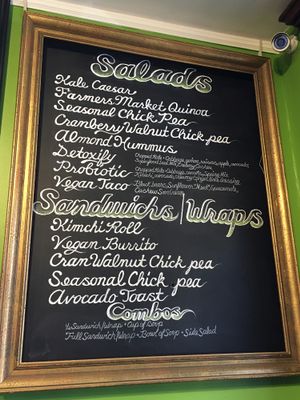 Salads
Kale Caesar
Farmers Market Quinoa
Seasonal Chick Pea
Cranberry Walnut Chick pea
Almond Hummus
Detoxify
Probiotic
Vegan Taco
Sandwichs | Wraps
Kimchi Roll
Vegan Burrito
Cran Walnut Chick pea
Seasonal Chick pea
Avocado Toast
Combos
½ Sandwich/Wrap + Cup of Soup
Full Sandwich/Wrap + Bowl of Soup + Side Salad